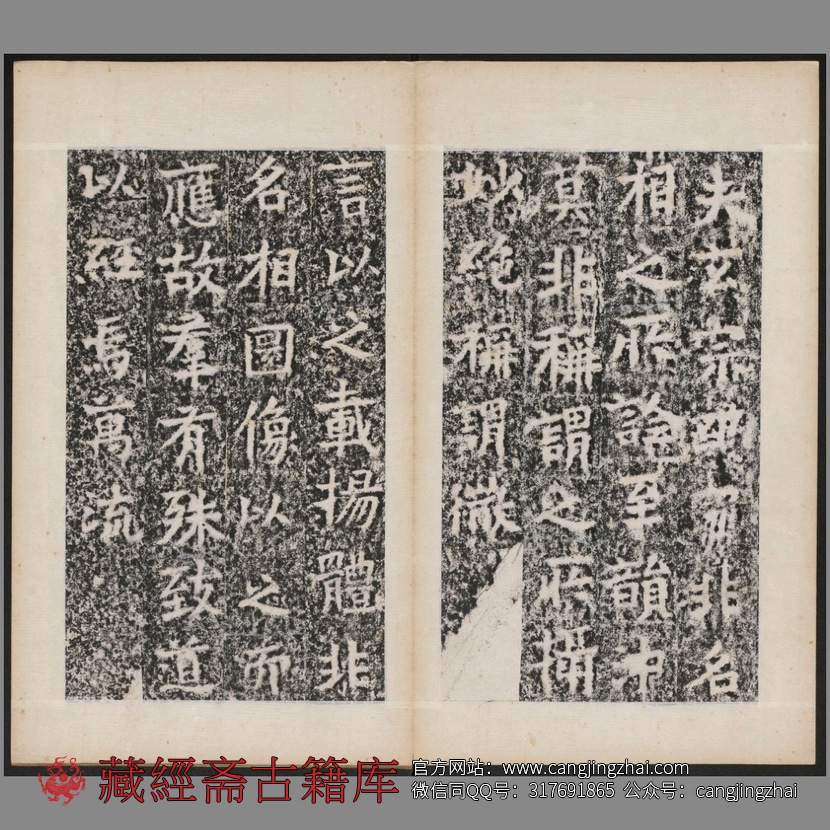 夫玄宗沖寂非名
相之所詮至韻沖
莫非稱謂之所攝
妙絶稱謂微
言以之載揚體非
名相圖像以之而
應故羣有殊致道
以經焉萬流
藏經斋古籍库
官方网站：www.cangjingzhai.com
微信同QQ号：317691865 公众号：cangjingzhai